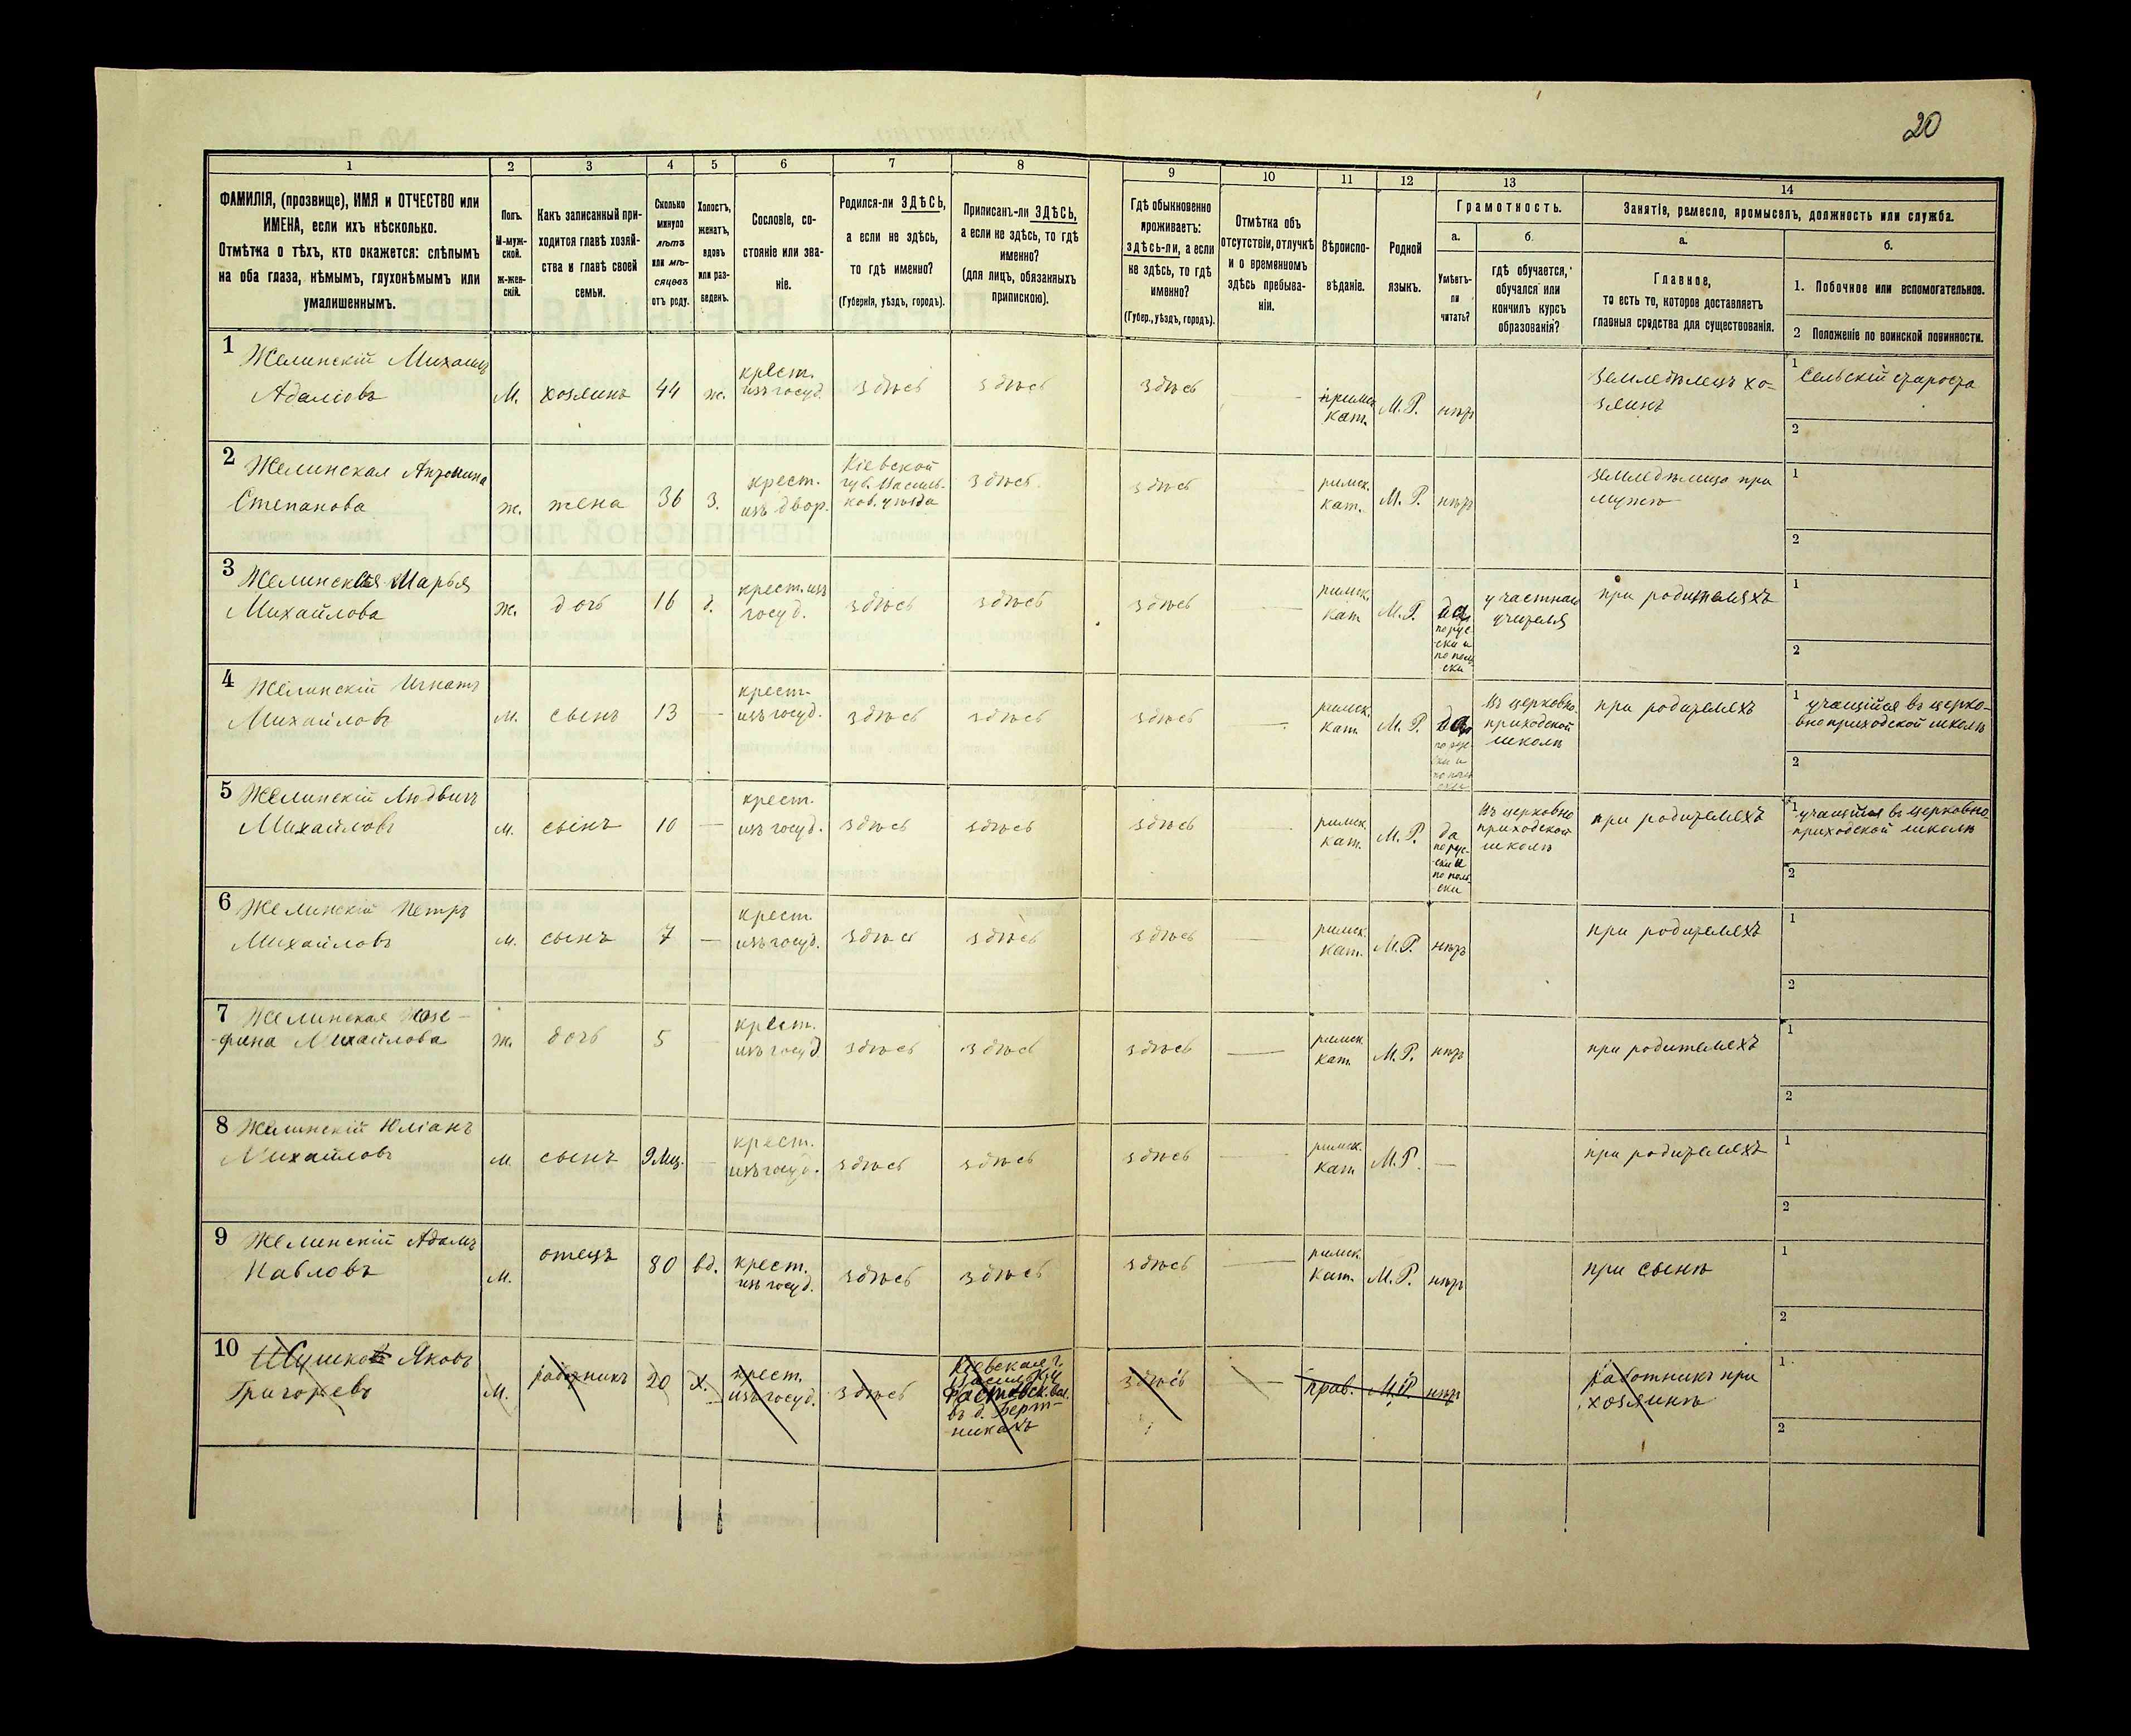 20
1
2
3
4
5
6
7
8
9
10
11
12
13
14
ФАМИЛІЯ, (прозвище), ИМЯ и ОТЧЕСТВО или
ИМЕНА, если ихъ нѣсколько.
Отмѣтка о тѣхъ, кто окажется: слѣпымъ
на оба глаза, нѣмымъ, глухонѣмымъ или
умалишеннымъ.
Полъ.
М-муж-
ской.
Ж-жен-
скій.
Какъ записанный при-
ходится главѣ хозяй-
ства и главѣ своей
семьи.
Сколько
минуло
лѣтъ
или мѣ-
сяцевъ
отъ роду.
Холостъ,
женатъ,
вдовъ
или раз-
веденъ.
Сословіе, со-
стояніе или зва-
ніе.
Родился-ли ЗДѢСЬ,
а если не здѣсь,
то гдѣ именно?
(Губернія, уѣздъ, городъ).
Приписанъ-ли ЗДѢСЬ,
а если не здѣсь, то гдѣ
именно?
(для лицъ, обязанныхъ
припискою).
Гдѣ обыкновенно
проживаетъ:
здѣсь-ли, а если
не здѣсь, то гдѣ
именно?
(Губер., уѣздъ, городъ).
Отмѣтка объ
отсутствіи, отлучкѣ
и о временномъ
здѣсь пребыва-
ніи.
Вѣроиспо-
вѣданіе.
Родной
языкъ.
Грамотность.
а.
Умѣетъ-
ли
читать?
б.
гдѣ обучается,
обучался или
кончилъ курсъ
образованія?
Занятіе, ремесло, промыселъ, должность или служба.
а.
Главное,
то есть то, которое доставляетъ
главныя средства для существованія.
б.
1. Побочное или вспомогательное.
2 Положеніе по воинской повинности.
1 Желинскій Михаилъ
Адамовъ
М.
хозяинъ
44
ж.
крест.
изъ госуд.
здѣсь
здѣсь
здѣсь
римск.
кат.
М.Р.
нѣтъ
Земледѣлецъ хо-
зяинъ
1 Сельскій староста
2
2 Желинская Антонина
Степанова
ж.
жена
36
З.
крест.
изъ двор.
Кіевской
губ. Василь-
ков. уѣзда
здѣсь
здѣсь
римск.
кат.
М.Р.
нѣтъ
Земледѣлица при
мужѣ
1
2
3 Желинская Марья
Михайлова
ж.
дочь
16
д.
крест. изъ
госуд.
здѣсь
здѣсь
здѣсь
римск.
кат
М.Р.
да
по рус-
ски и
по поль-
ски
у частнаго
учителя
при родителяхъ
1
2
4 Желинскій Игнатъ
Михайловъ
м.
сынъ
13
крест.
изъ госуд.
здѣсь
здѣсь
здѣсь
римск.
кат
М.Р.
да
по рус-
ски и
по поль-
ски
Въ церковно
приходской
школѣ
при родителяхъ
1 учащійся въ церко-
вно приходской школѣ
2
5 Желинскій Людвигъ
Михайловъ
м.
сынъ
10
крест.
изъ госуд.
здѣсь
здѣсь
здѣсь
римск.
кат.
М.Р.
да
по рус-
ски и
по поль-
ски
Въ церковно
приходской
школѣ
при родителяхъ
1 учащійся въ церковно
приходской школѣ
2
6 Желинскій Петръ
Михайловъ
м.
сынъ
7
крест.
изъ госуд.
здѣсь
здѣсь
здѣсь
римск.
кат.
М.Р.
нѣтъ
при родителяхъ
1
2
7 Желинская Жозе-
фина Михайлова
ж.
дочь
5
крест.
изъ госуд
здѣсь
здѣсь
здѣсь
римск
кат.
М.Р.
нѣтъ
при родителяхъ
1
2
8 Желинскій Юліанъ
Михайловъ
м.
сынъ
9 Мц.
крест.
изъ госуд.
здѣсь
здѣсь
здѣсь
римск.
кат
М.Р.
при родителяхъ
1
2
9 Желинскій Адамъ
Павловъ
м.
отецъ
80
вд.
крест.
изъ госуд.
здѣсь
здѣсь
здѣсь
римск.
кат.
М.Р.
нѣтъ
при сынѣ
1
2
10 Яковъ
Григорьевъ
М.
работникъ
20
х.
крест.
изъ госуд.
здѣсь
Кіевская г.
Фастовск. вол.
въ д.
здѣсь
прав.
М.Р.
нѣтъ
работникъ при
хозяинѣ
1
2